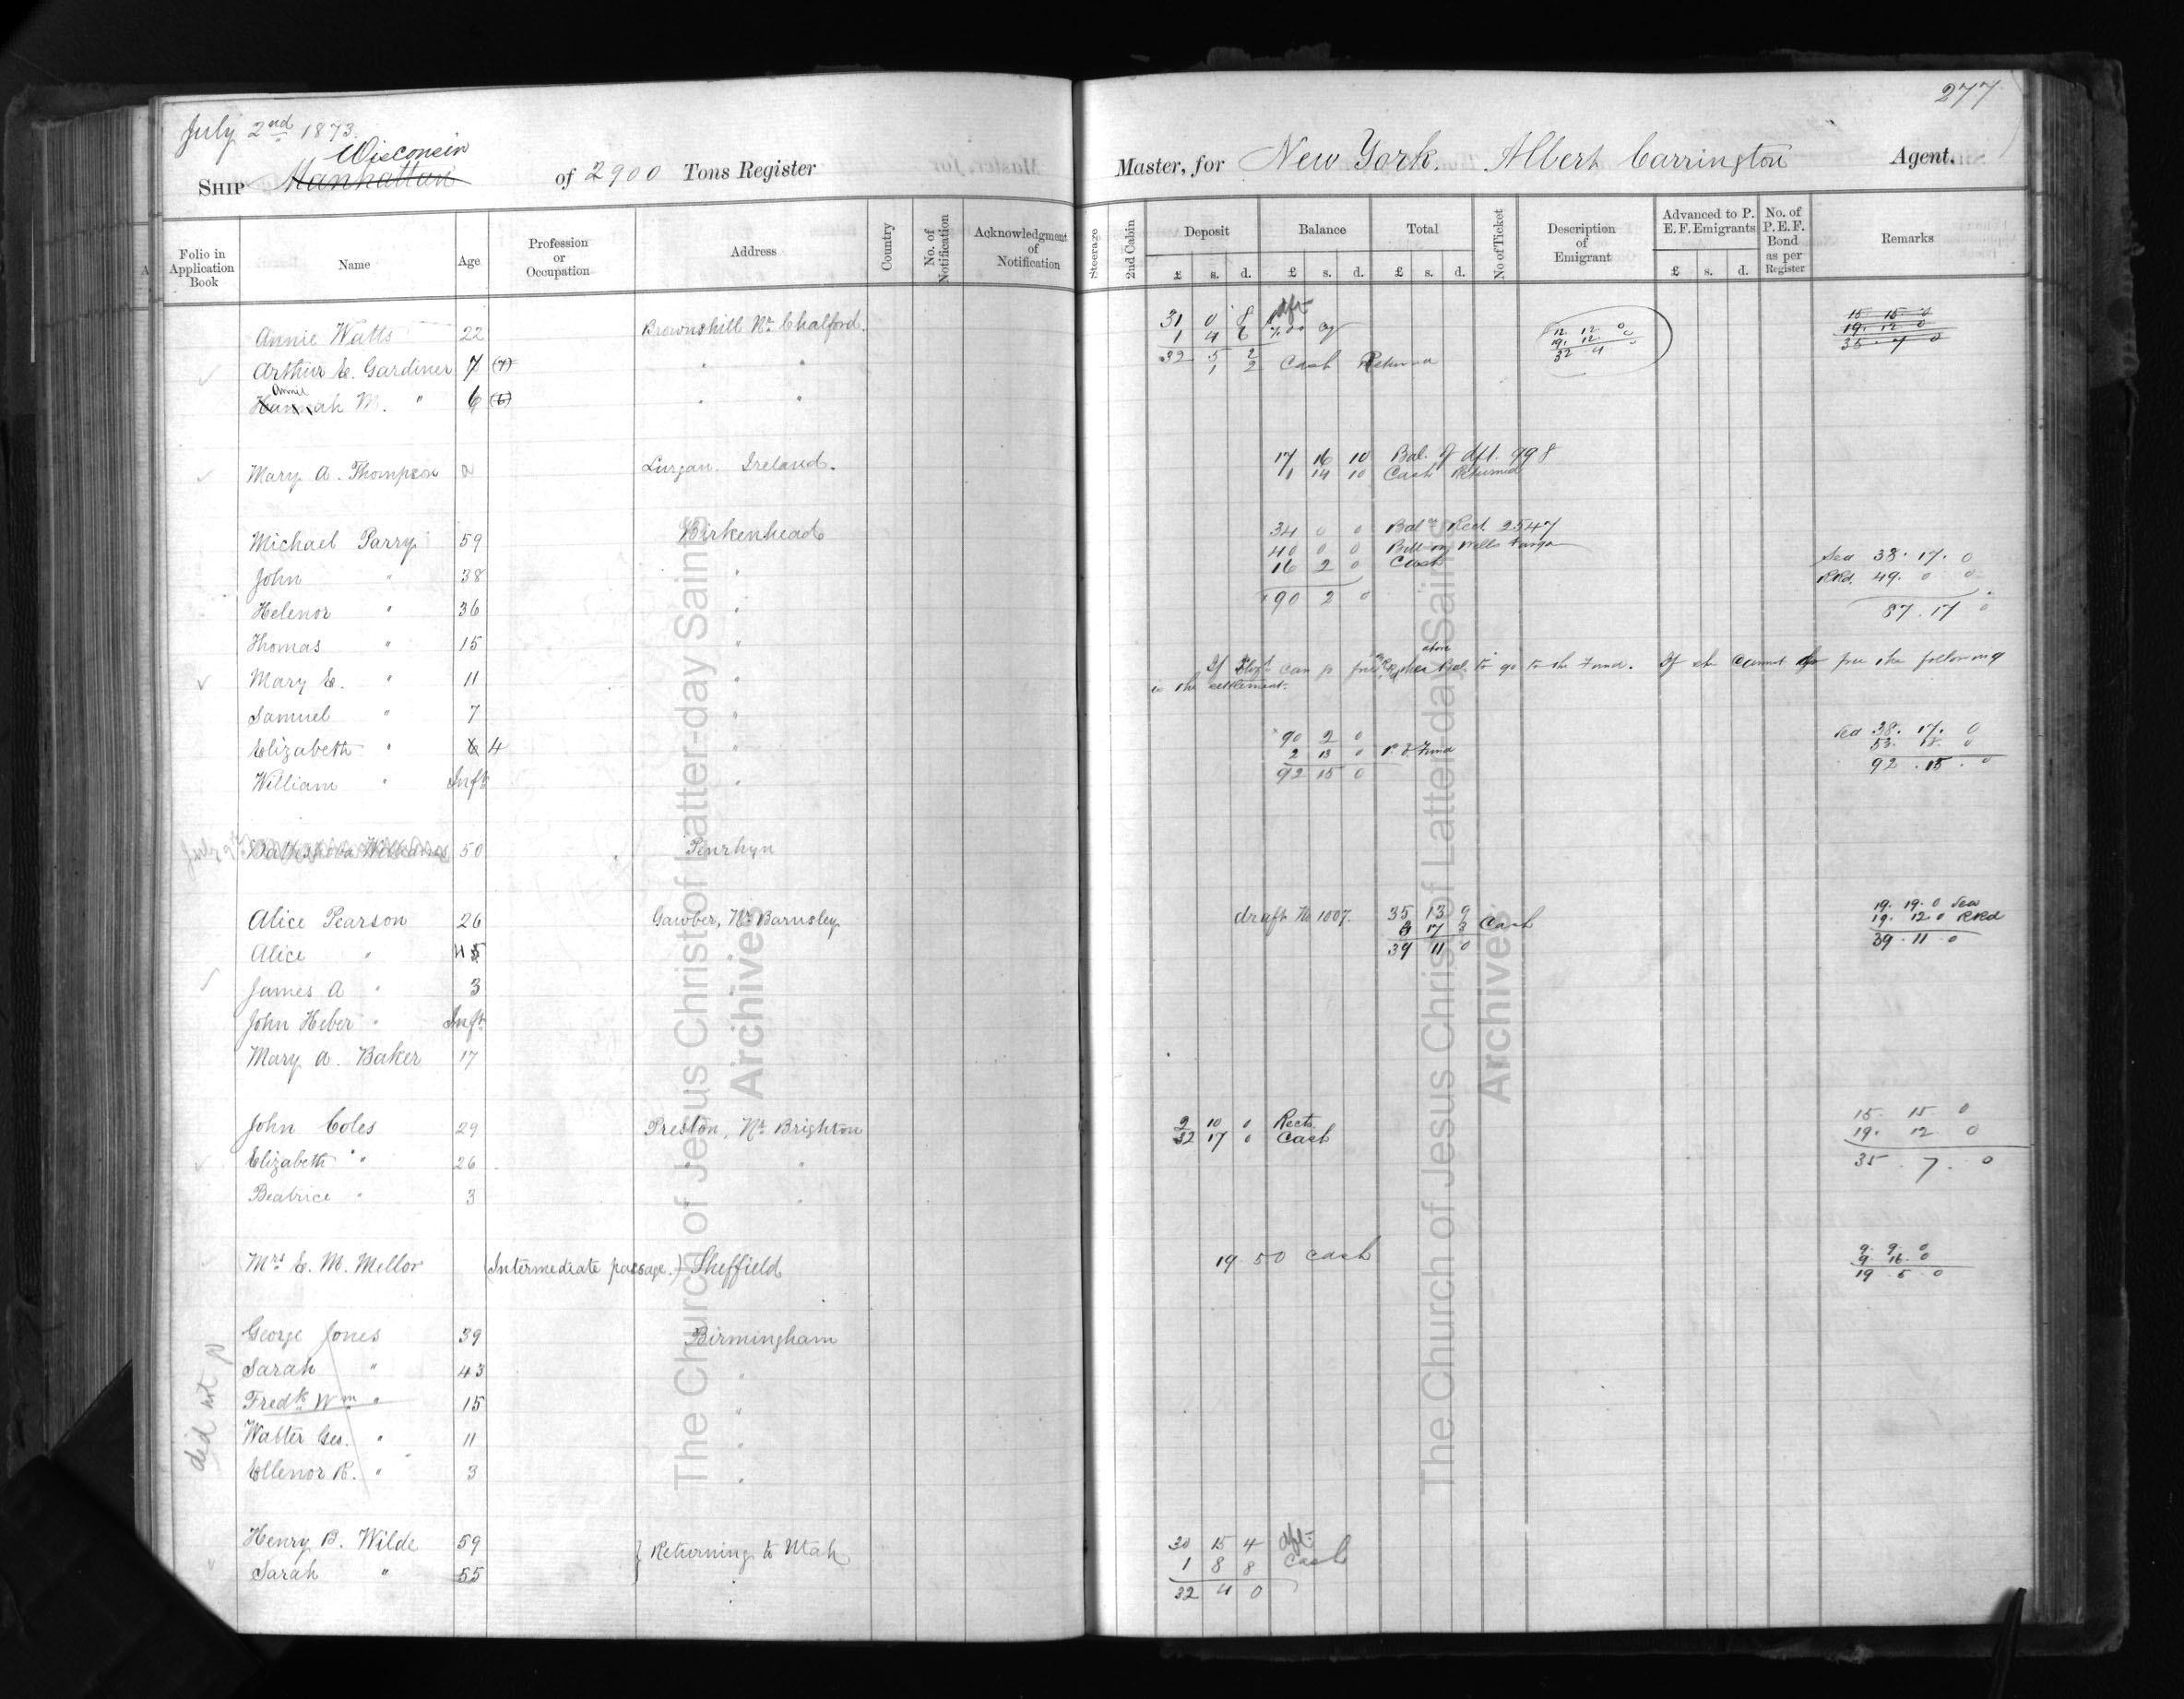 277
July 2nd 1873.
Wisconsin
Ship Manhattan of 2900 Tons Register
Master, for New York. Albert Carrington Agent.
Folio in Application Book
Name
Age
Profession or Occupation
Address
Country
No. of Notification
Acknowledgment of Notification
Steerage
2nd Cabin
Deposit
£ s. d.
Balance
£ s. d.
Total
£ s. d.
No of Ticket
Description of Emigrant
Advanced to P. E. F. Emigrants
£ s. d.
No. of P. E. F. Bond as per Register
Remarks
Annie Watts 22 Brownshill Nr. Chalford.
31 0 8 dft
1 4 6
12 12 0
19. 12. 0
32 4 0
15 15 0
19. 12 0
35 7 0
Arthur E. Gardiner 7 (7) " "
32 5 2
1 2 Cash Returned
Annie
Hannah M. " 6 (6) " "
Mary A. Thompson a Lurgan. Ireland.
17 16 10 Bal. of dft. 998
1 14 10 Cash Returned
Michael Parry 59 Birkenhead
34 0 0 Bal. Rect. 2547
40 0 0 Bill on Wells Fargo
16 2 0 Cash
90 2 0
Sea 38. 17. 0
RRd. 49. 0 0
87. 17 0
John " 38 "
Helenor " 36 "
Thomas " 15 "
above
If Elizth can go free on RRd the Bal. to go to the Fund. If she cannot go free the following
is the settlement.
Mary E. " 11 "
Samuel " 7 "
Elizabeth " 6 4 "
90 2 0
2 13 0 Fund
92 15 0
Sea 38. 17. 0
53. 18. 0
92. 15. 0
William " Inft "
July 9th Bathsheba Williams 50 Penrhyn
Alice Pearson 26 Gawber, Nr. Barnsley
draft No 1007. 35 13 9
3 17 3 Cash
39 11 0
19. 19. 0 Sea
19. 12. 0 RRd
39. 11. 0
Alice " 4 5
James A " 3 "
John Heber " Inft "
Mary A. Baker 17
John Coles 29 Preston, Nr. Brighton
2 10 0 Rects.
32 17 0 Cash
15. 15. 0
19. 12 0
35. 7. 0
Elizabeth " 26 " "
Beatrice " 3 "
Mrs E. M. Mellor (Intermediate passage.) Sheffield
19 5 0 Cash
9. 9. 0
9 16. 0
19 5 0
did not go
George Jones 39 Birmingham
Sarah " 43 "
Fredk Wm " 15 "
Walter Geo. " 11 "
Ellenor R. " 3 "
Henry B. Wilde 59 } Returning to Utah
Sarah " 55
30 15 4 dft
1 8 8 Cash
32 4 0
The Church of Jesus Christ of Latter-day Saints
Archives
The Church of Jesus Christ of Latter-day Saints
Archives